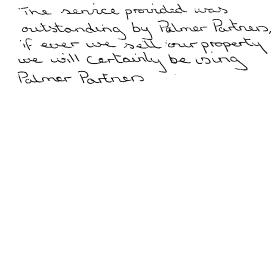 The service provided was
outstanding by Palmer Partners,
if ever we sell our property
we will certainly be using
Palmer Partners